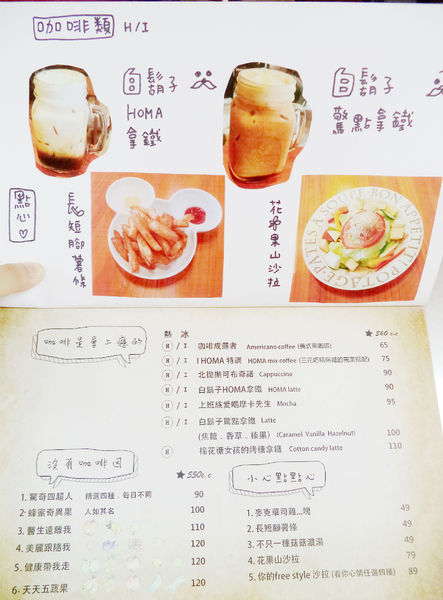 咖啡類 H/I
白鬍子
HOMA
拿鐵
白鬍子
驚點拿鐵
點心
長短腳薯條
花果山沙拉
SOUPE·BON APPETIT POTAGE·PATES A
咖啡是會上癮的
熱 冰 ★360 c.c
H / I 咖啡成癮者 Americano coffee (美式黑咖啡) 65
H / I I HOMA 特調 HOMA mix coffee (三花奶特與咖的完美搭配) 75
H 北拋拋可布奇諾 Cappuccino 90
H / I 白鬍子HOMA拿鐵 HOMA latte 90
H / I 上班族愛喝摩卡先生 Mocha 95
H / I 白鬍子驚點拿鐵 Latte
(焦糖、香草、榛果) (Caramel Vanilla Hazelnut) 100
H 棉花糖女孩的烤穗拿鐵 Cotton candy latte 110
沒有咖啡因
★550c.c
1. 驚奇四超人 精選四種，每日不同 90
2. 蜂蜜奇異果 人如其名 100
3. 醫生遠離我 110
4. 美麗跟隨我 120
5. 健康帶我走 120
6. 天天五蔬果 120
小心點點心
1. 麥克華司雞...塊 49
2. 長短腳薯條 49
3. 不只一種菇菇濃湯 49
4. 花果山沙拉 79
5. 你的free style 沙拉 (看你心情任選四種) 89